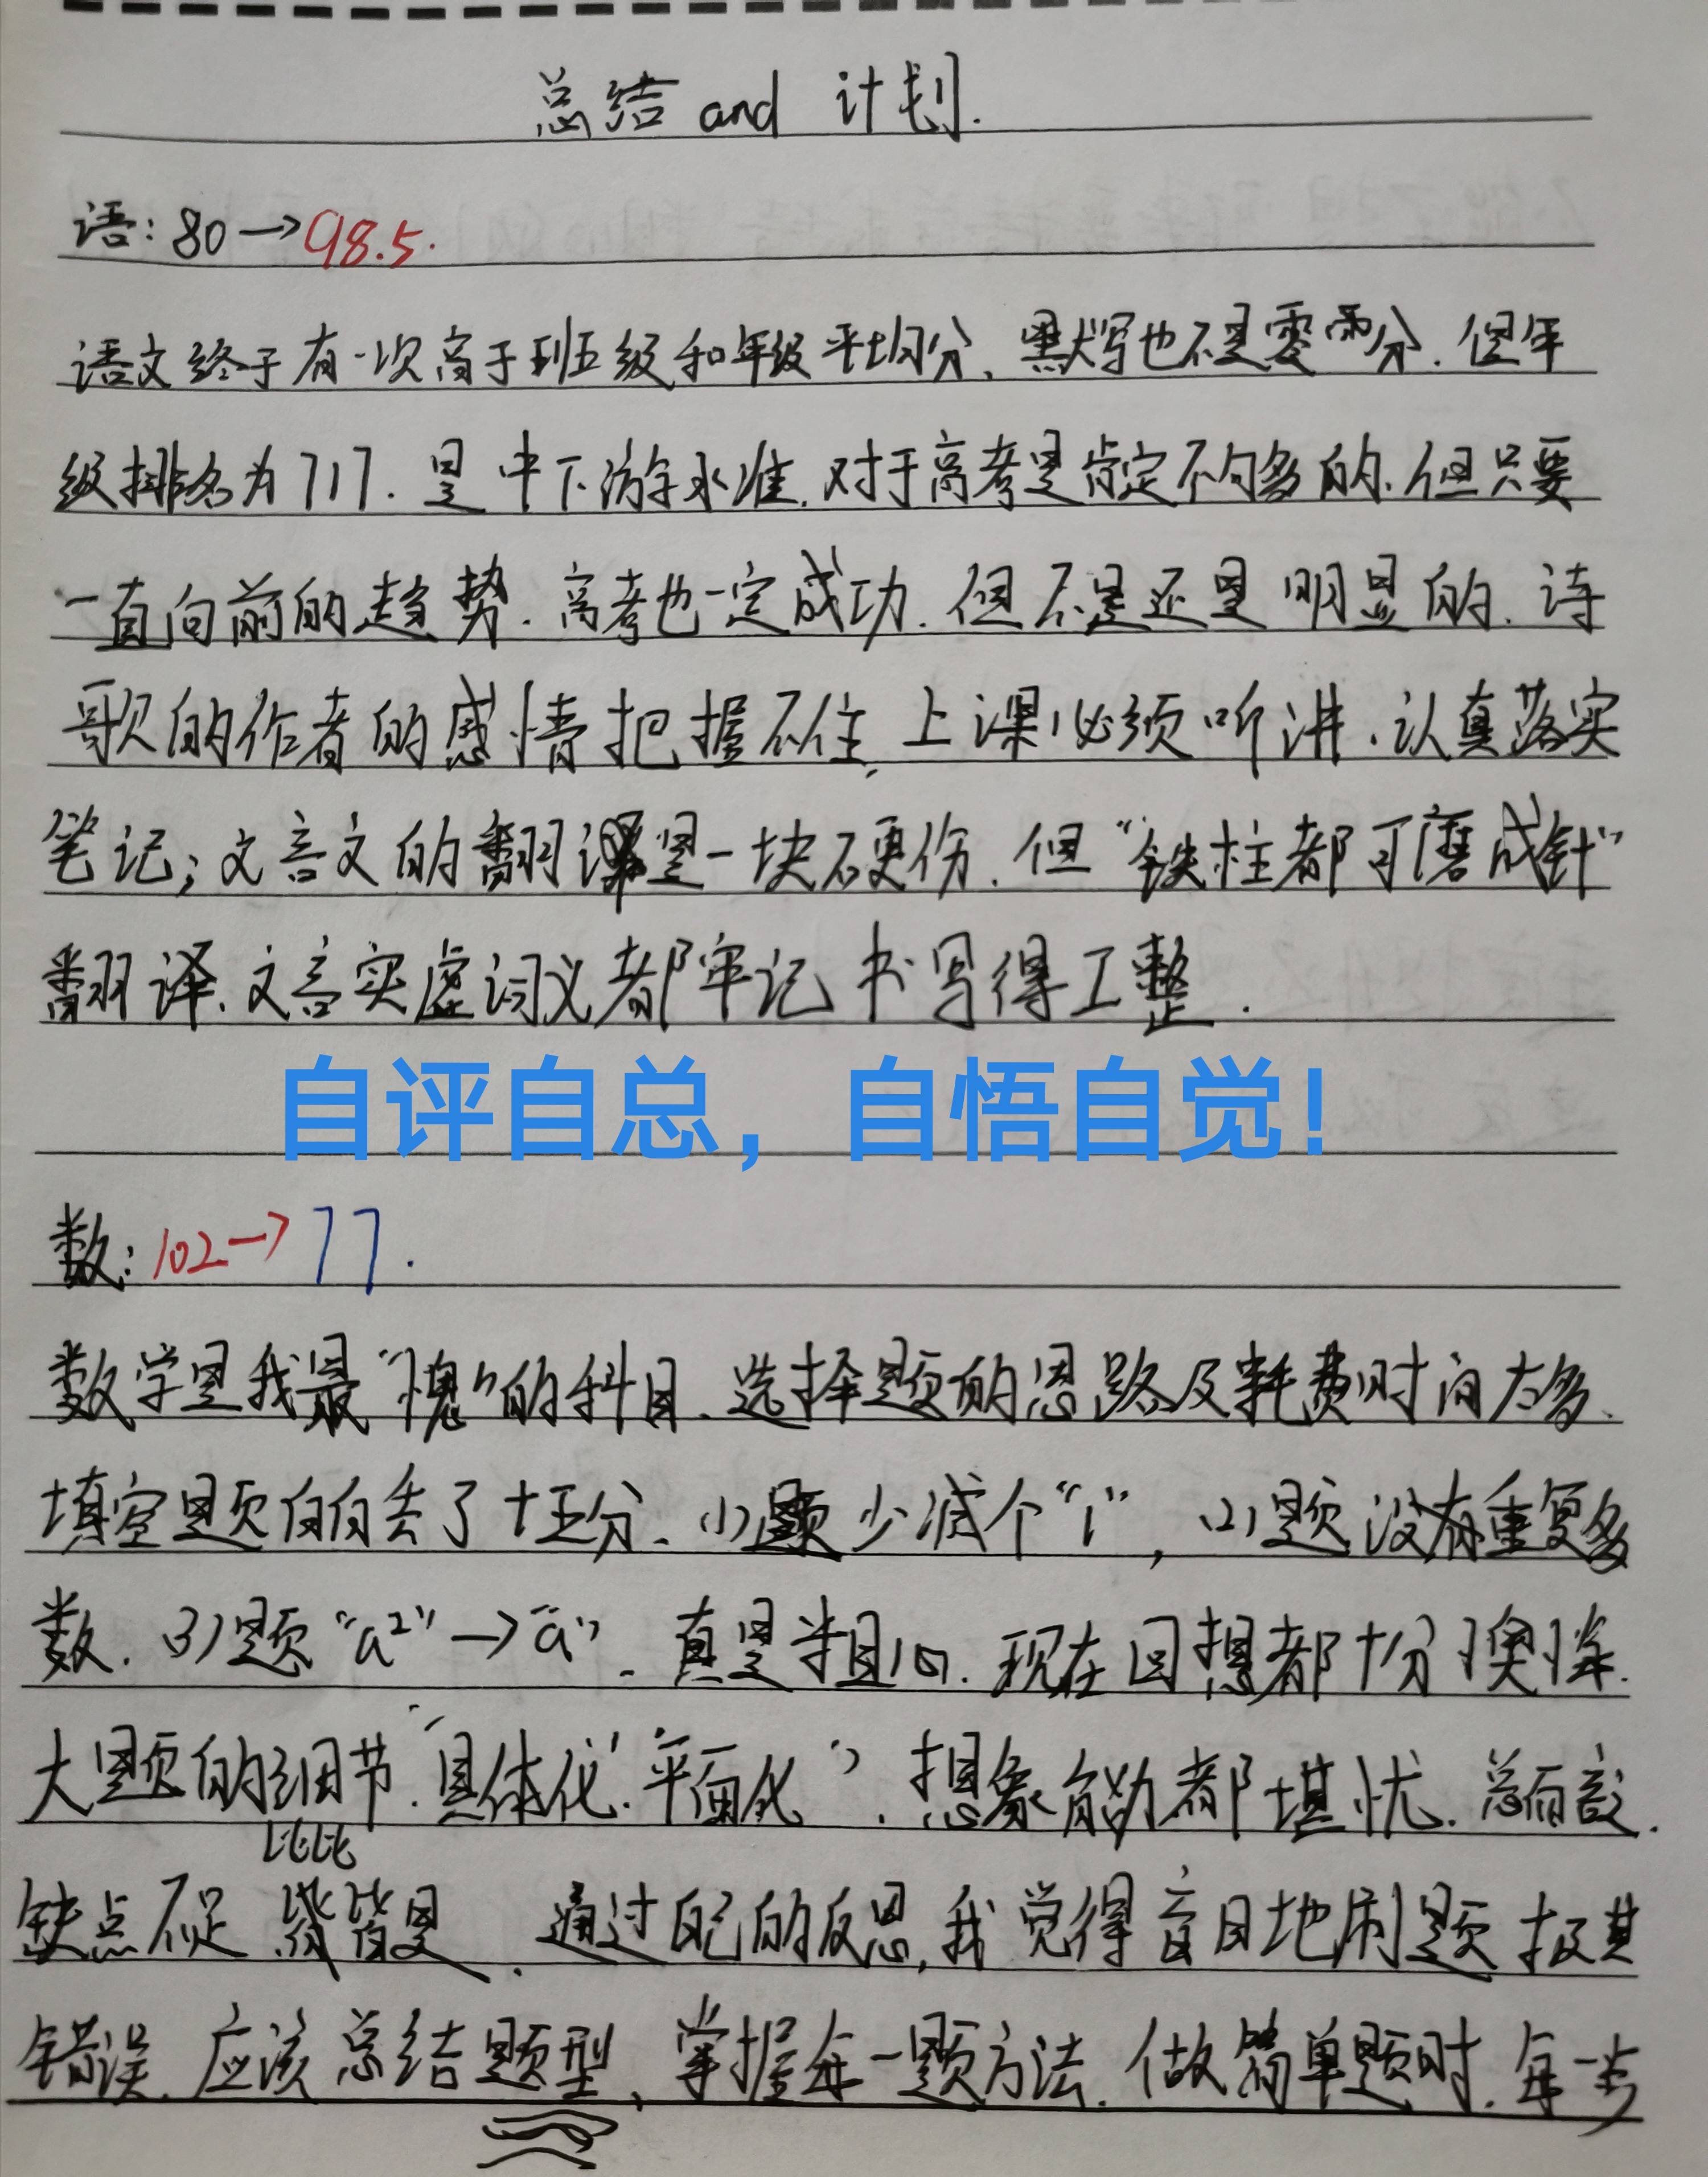 总结 and 计划.
语: 80→98.5.
语文终于有一次高于班级和年级平均分、默写也不是零分. 但年
级排名为717. 是中下游水准. 对于高考是肯定不够的. 但只要
一直向前的趋势. 高考也一定成功. 但不是还是明显的. 诗
歌的作者的感情把握不住, 上课必须听讲. 认真落实
笔记; 文言文的翻译是一块硬伤. 但“铁柱都可磨成针”
翻译. 文言实虚词义都牢记 书写得工整.
自评自总，自悟自觉！
数: 102→77.
数学是我最“愧”的科目. 选择题的思路及耗费时间太多、
填空题白白丢了十五分. (1)题少减个“1”, (2)题没有重复多
数. (3)题“a²”→“a”. 真是粗心. 现在回想都十分懊悔.
大题的细节. “具体化、平面化”. 想象能力都堪忧. 总而言之.
缺点不足 比比皆是. 通过自己的反思, 我觉得盲目地刷题 极其
错误. 应该总结题型、掌握每一题方法. 做简单题时. 每一步